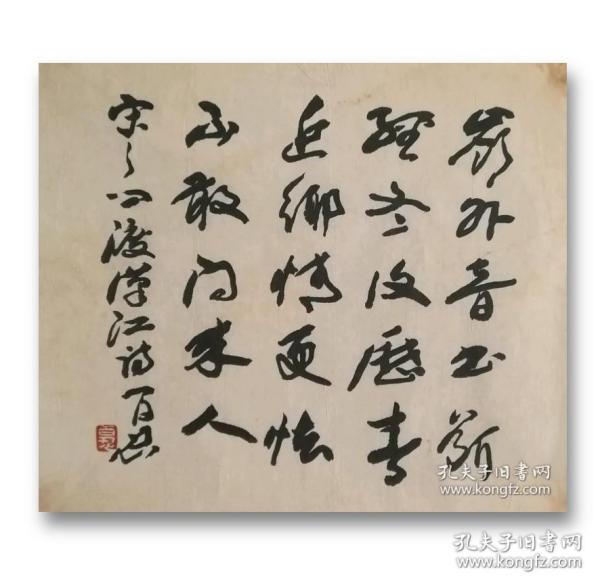 嶺外音书斷
經冬復歷春
近鄉情更怯
不敢问来人
宋之问渡漢江诗 百
孔夫子旧书网
www.kongfz.com
孔夫子旧书网
www.kongfz.com